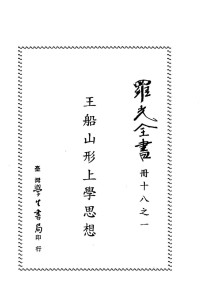 羅光全書
冊十八之一
王船山形上學思想
臺灣學生書局印行